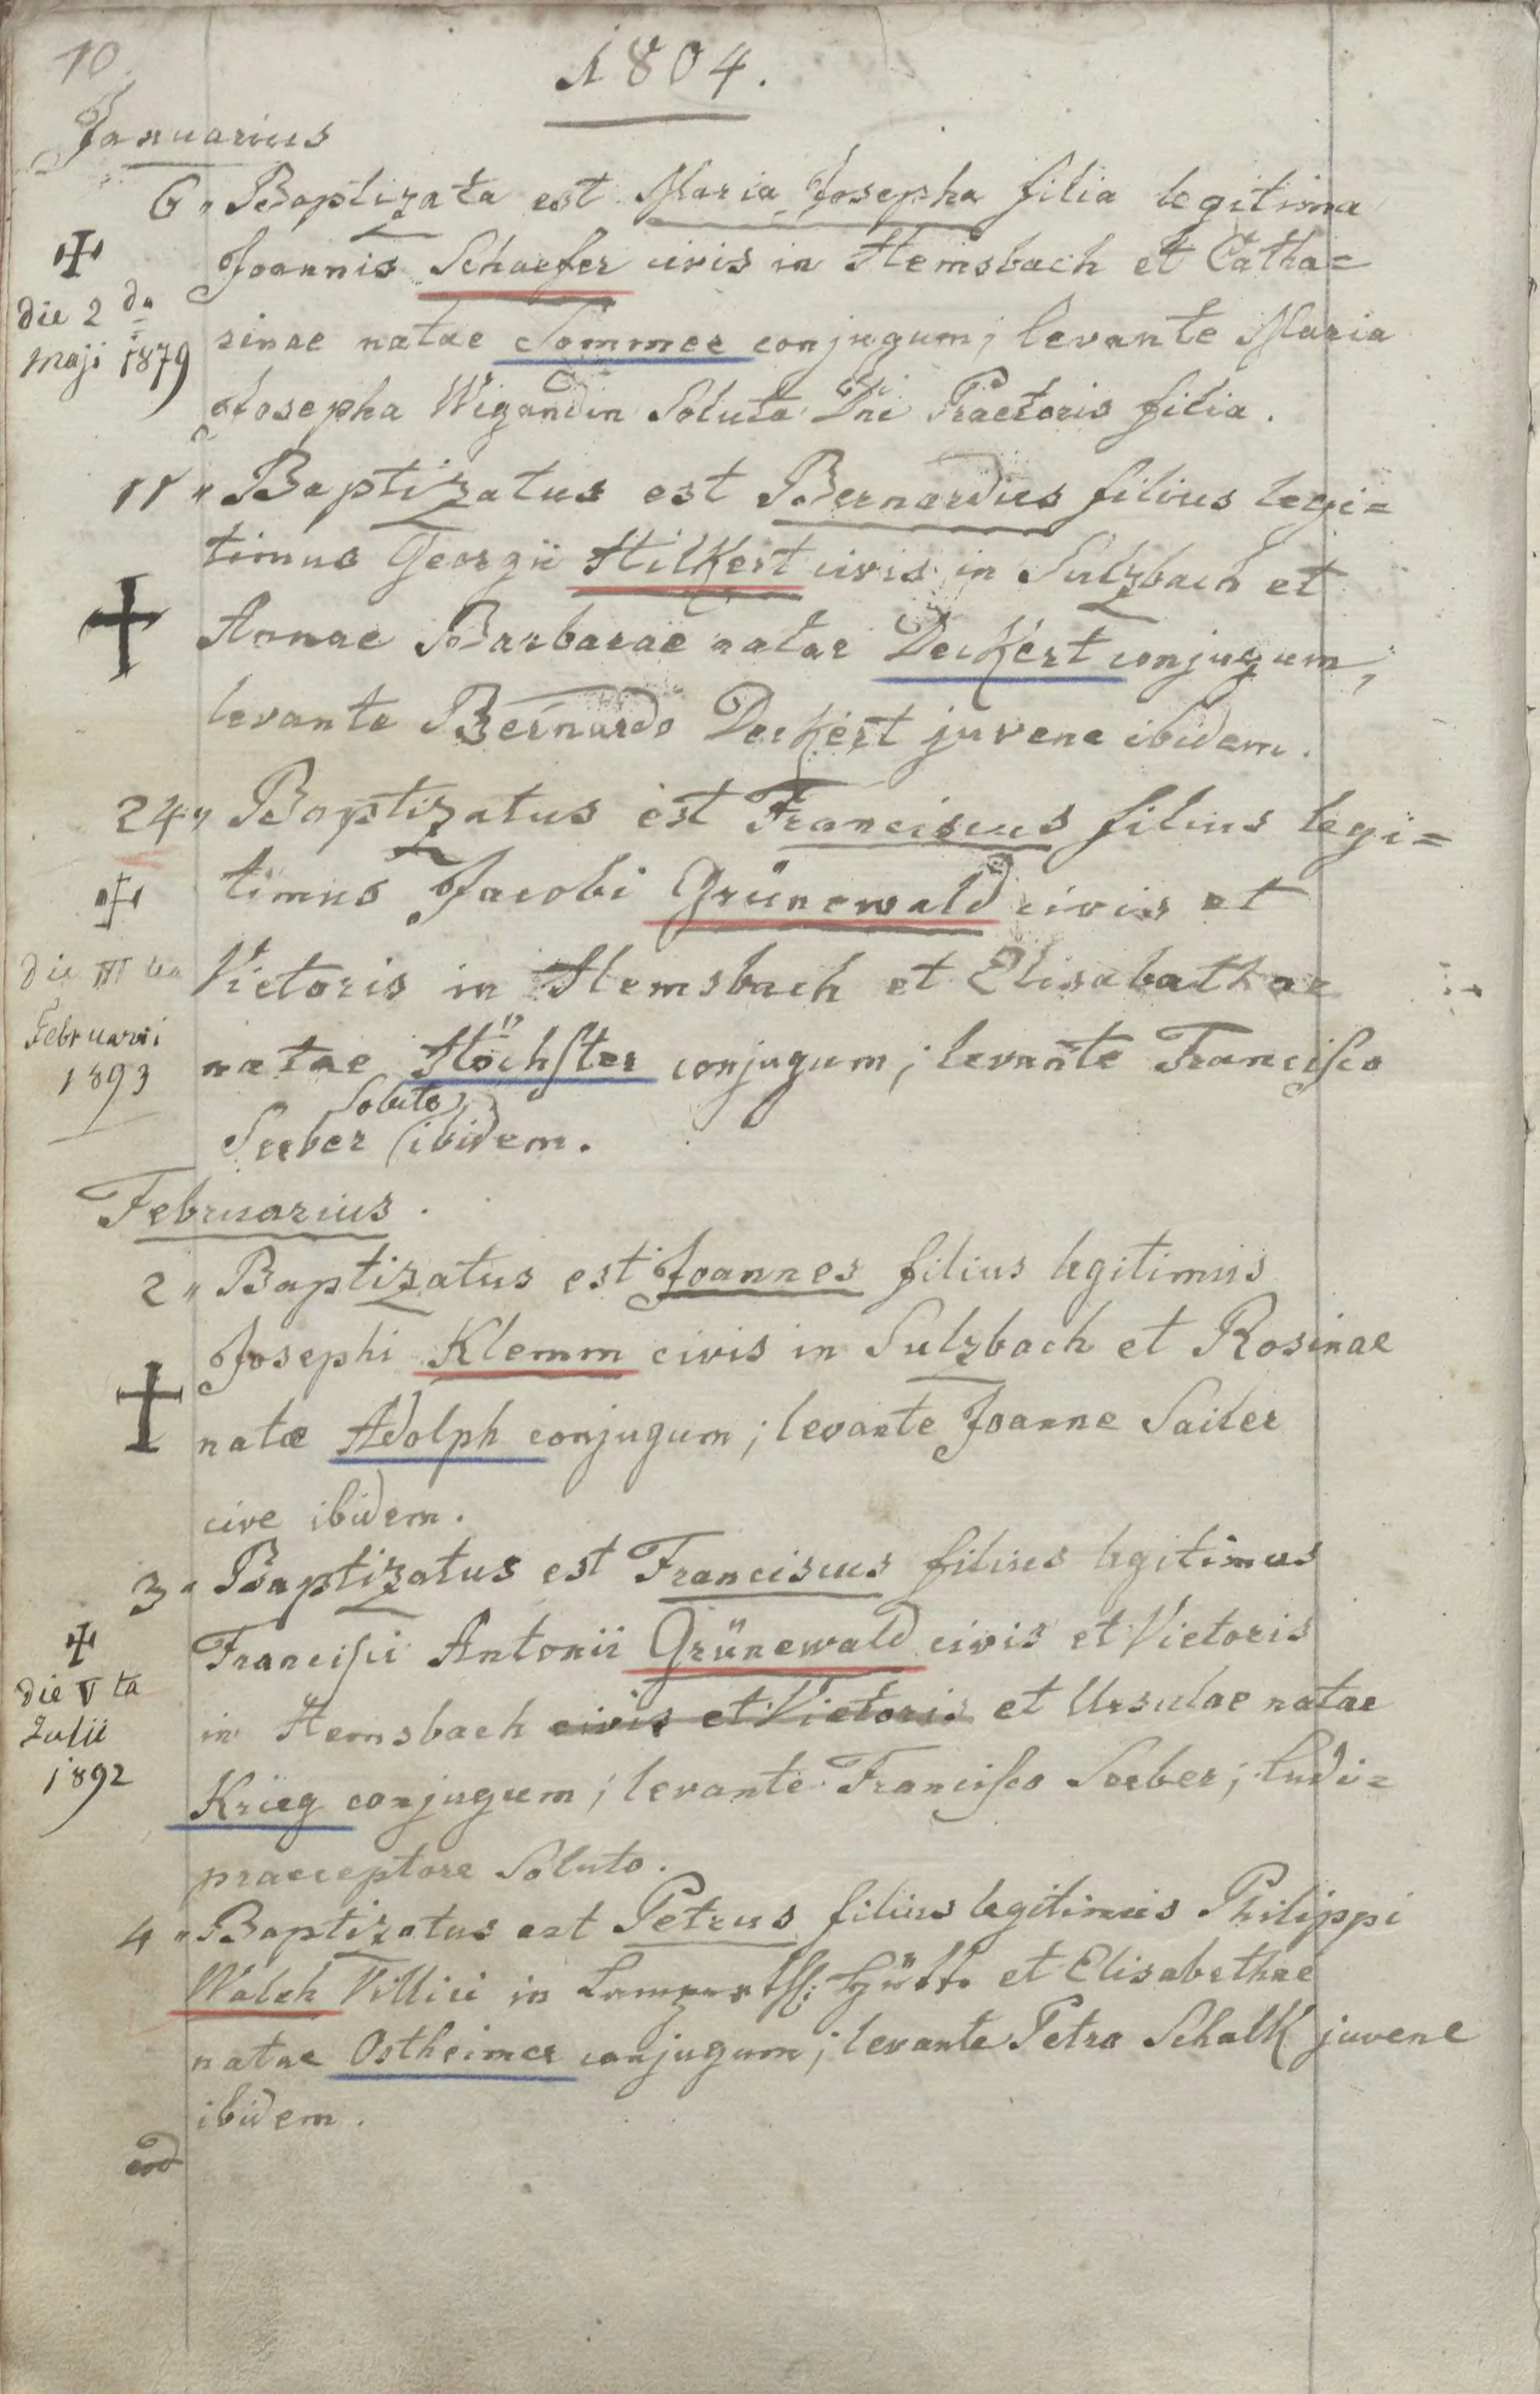 10
1804.
Januarius
6 " Baptizata est Maria Josepha filia legitima
Joannis Schaefer civis in Hemsbach et Catha=
die 2 da
rinae natae Sommer conjugum; levante Maria
maji 1879
Josepha Wigandin Soluta Dni Praetoris filia.
11 " Baptizatus est Bernardus filius legi=
timus Georgii Hilkert civis in Sulzbach et
Annae Barbarae natae Deckert conjugum;
levante Bernardo Deckert juvene ibidem.
24 " Baptizatus est Franciscus filius legi=
timus Jacobi Grünewald civis et
die III tia
Vietoris in Hemsbach et Elisabethae
Februarii
1893
natae Höchster conjugum; levante Francisco
Soluto
Seeber ibidem.
Februarius.
2 " Baptizatus est Joannes filius legitimus
Josephi Klemm civis in Sulzbach et Rosinae
natae Adolph conjugum; levante Joanne Sailer
cive ibidem.
3 " Baptizatus est Franciscus filius legitimus
Francisci Antonii Grünewald civis et Vietoris
die V ta
Julii
1892
in Hemsbach civis et Vietoris et Ursulae natae
Krieg conjugum; levante Francisco Seeber; Ludi=
praeceptore Soluto.
4 " Baptizatus est Petrus filius legitimus Philippi
Walch Villici in et Elisabethae
natae Ostheimer conjugum; levante Petro Schalk juvene
ibidem.